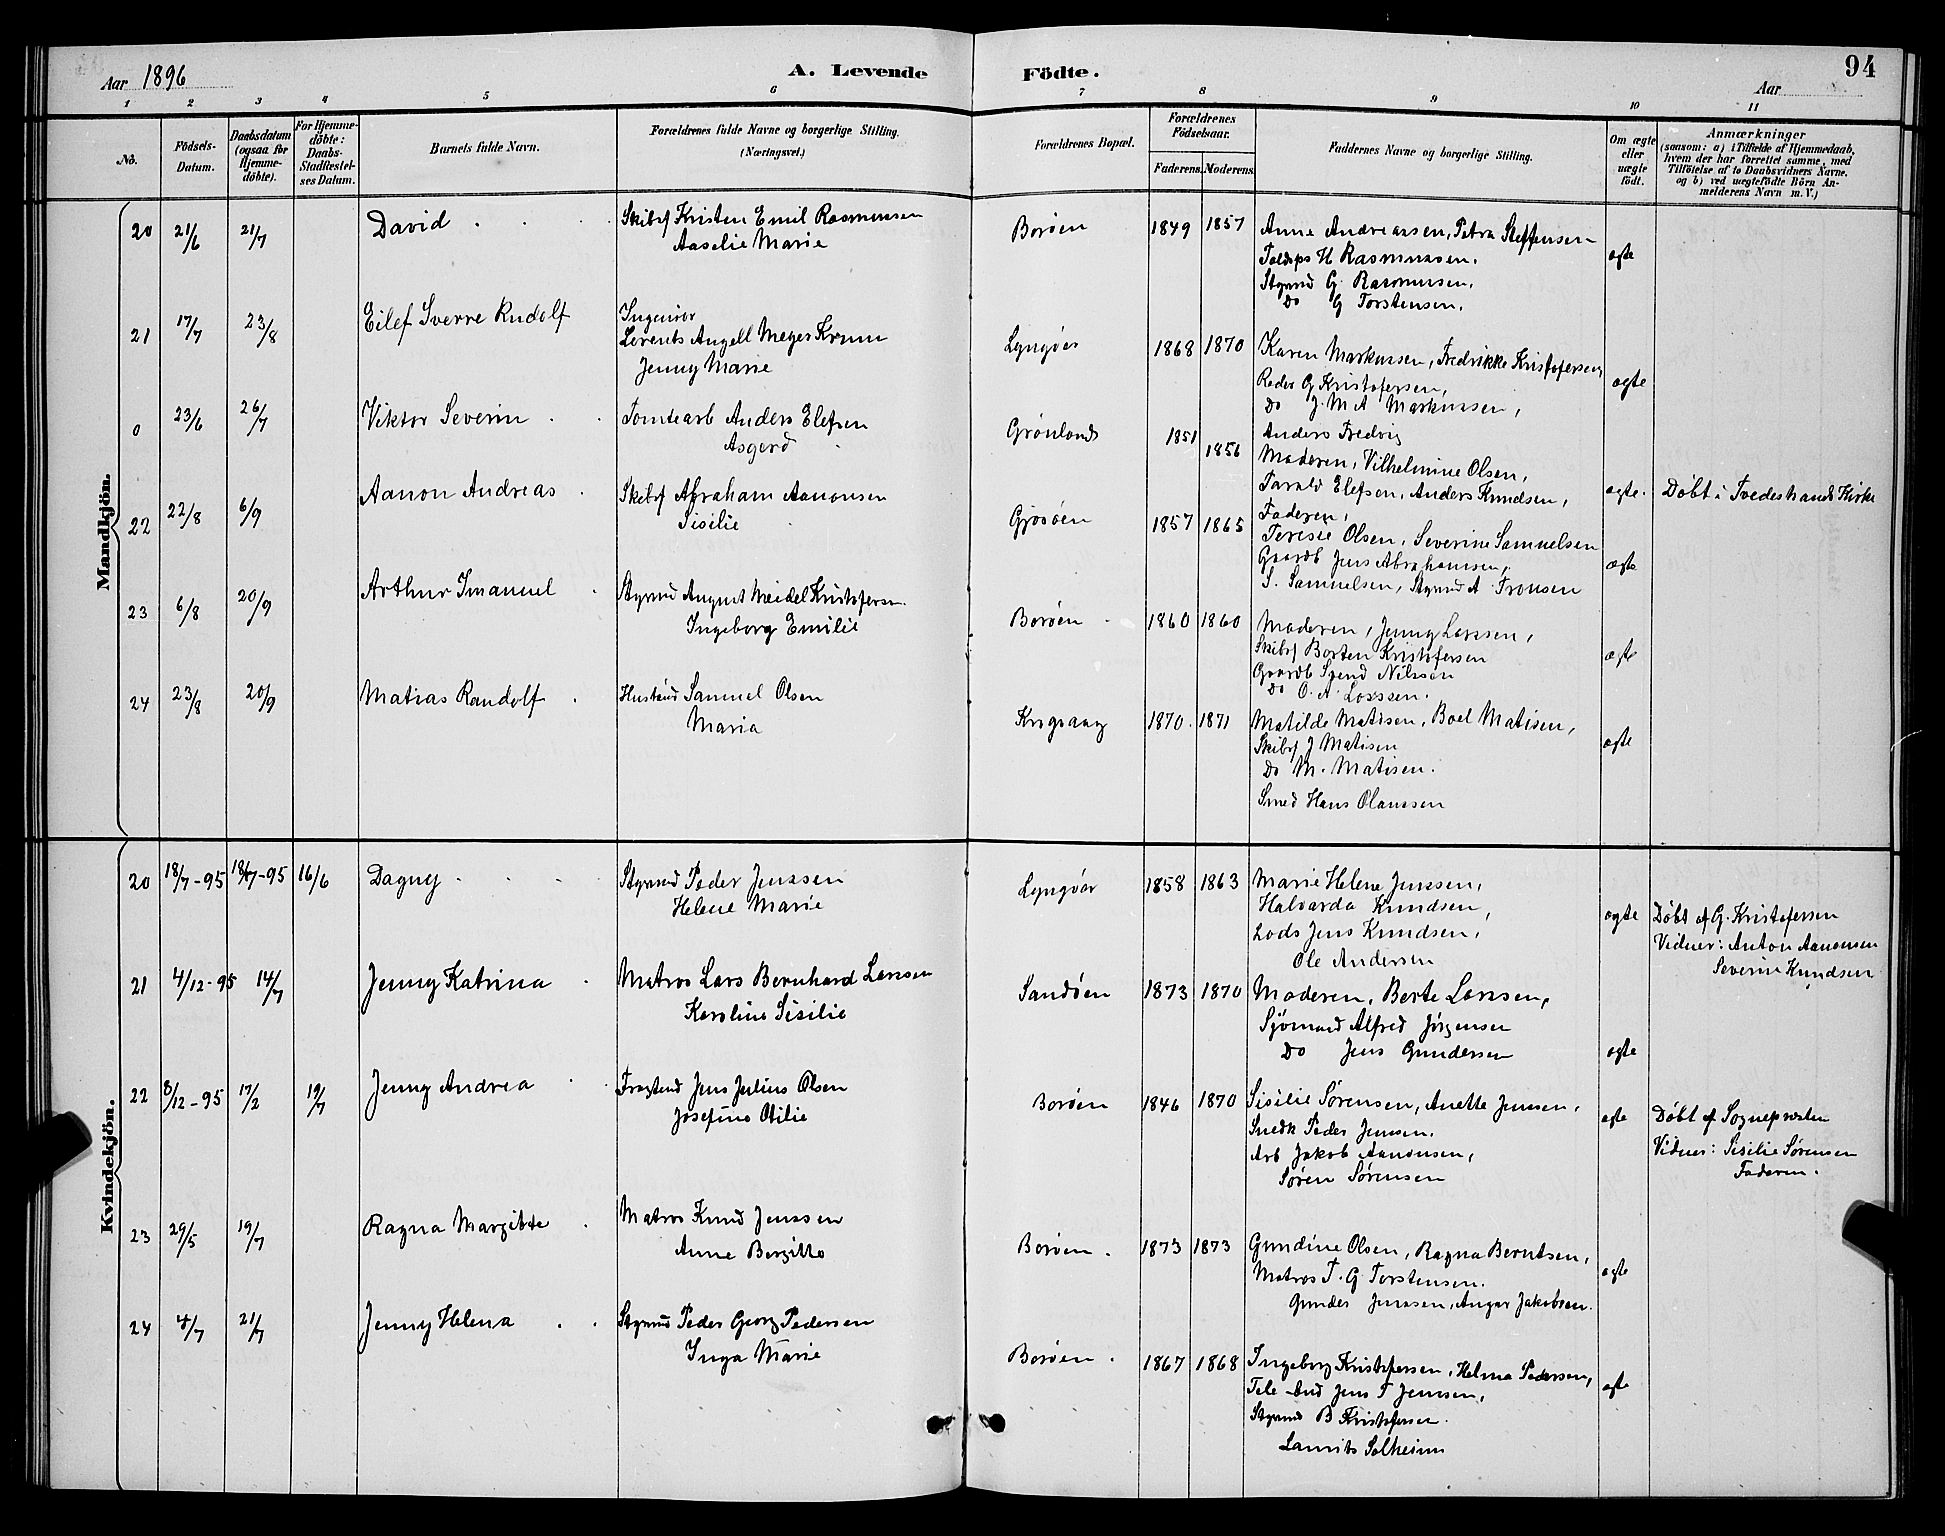 Aar 1896
A. Levende Födte.
94
Aar
1 2 3 4 5 6 7 8 9 10 11
No.
Födsels-Datum.
Daabsdatum (ogsaa for Hjemme-döbte).
For Hjemme-döbte: Daabs-Stadfæstel-ses Datum.
Barnets fulde Navn.
Forældrenes fulde Navne og borgerlige Stilling. (Næringsvei.)
Forældrenes Bopæl.
Forældrenes Födselsaar.
Faderens. Moderens.
Faddernes Navne og borgerlige Stilling.
Om ægte eller uægte födt.
Anmærkninger
(saasom: a) i Tilfælde af Hjemmedaab, hvem der har forrettet samme, med Tilföielse af to Daabsvidners Navne, og b) ved uægtefödte Börn Anmelderens Navn m.V.)
Mandkjön.
20 21/6 21/7 David Skibsf Kristen Emil Rasmussen
Aaselie Marie
Borøen 1849 1857 Anne Andreassen, Petra Steffensen
H Rasmussen,
Styrmd G. Rasmussen,
Do G Torstensen,
ægte
21 17/7 23/8 Eilef Sverre Rudolf Ingeniør
Lorents Angell Meyer Krum
Jenny Marie
Lyngøer 1868 1870 Karen Markussen, Fredrikke Kristofersen,
Reder G Kristofersen,
Do J. M A Markussen,
ægte
0 23/6 26/7 Viktor Severin Tomtearb Anders Elefsen
Asgerd
Grønland 1851 1856 Anders Fredvig
Moderen, Vilhelmine Olsen,
Tarald Elefsen, Anders Knudsen,
Faderen,
ægte. Døbt i Tvedestrands Kirke
22 22/8 6/9 Aanon Andreas Skibsf Abraham Aanonsen
Sisilie
Gjesøen 1857 1865 Teresie Olsen, Severine Samuelsen
Gaardb Jens Abrahamsen,
S. Samuelsen, Styrmd A. Tronsen
ægte
23 6/8 20/9 Arthur Imanuel Styrmd August Meidel Kristofersen
Ingeborg Emilie
Borøen 1860 1860 Moderen, Jenny Larssen,
Skibsf Borten Kristofersen
Gaardb Svend Nilssen
Do O. A. Larssen.
ægte
24 23/8 20/9 Matias Randolf Samuel Olsen
Maria
Krogvaag 1870 1871 Matilde Matisen, Boel Matisen,
Skibsf J Matisen
Do M. Matisen.
Smed Hans Olaussen
ægte
Kvindekjön.
20 18/7-95 18/7-95 16/6 Dagny Styrmd Peder Jenssen
Helene Marie
Lyngøer 1858 1863 Marie Helene Jenssen,
Halvarda Knudsen,
Lods Jens Knudsen,
Ole Andersen
ægte Døbt af G. Kristofersen
Vidner: Anton Aanonsen
Severin Knudsen
21 4/12-95 14/7 Jenny Katrina Matros Lars Bernhard Larssen
Karoline Sisilie
Sandøen 1873 1870 Moderen, Berte Larssen,
Sjømand Alfred Jørgensen
Do Jens Gundersen
ægte
22 8/12-95 17/2 19/7 Jenny Andrea Jens Julius Olsen
Josefine Otilie
Borøen 1846 1870 Sisilie Sørensen, Anette Jenssen,
Snedk Peder Jenssen,
Arb Jakob Aanonsen,
Søren Sørensen
ægte Døbt af Sognepresten
Vidner: Sisilie Sørensen
Faderen.
23 29/5 19/7 Ragna Margitte Matros Knud Jenssen
Anne Bergitte
Borøen 1873 1873 Gundine Olsen, Ragna Berntsen,
Matros T. G. Torstensen.
Gunder Jenssen, Ansgar Jakobsen.
ægte
24 4/7 21/7 Jenny Helena Styrmd Peder Georg Pedersen
Inga Marie
Borøen 1867 1868 Ingeborg Kristofersen, Helma Pedersen,
Jens T Jenssen,
Styrmd B Kristofersen.
Laurits Solheim
ægte